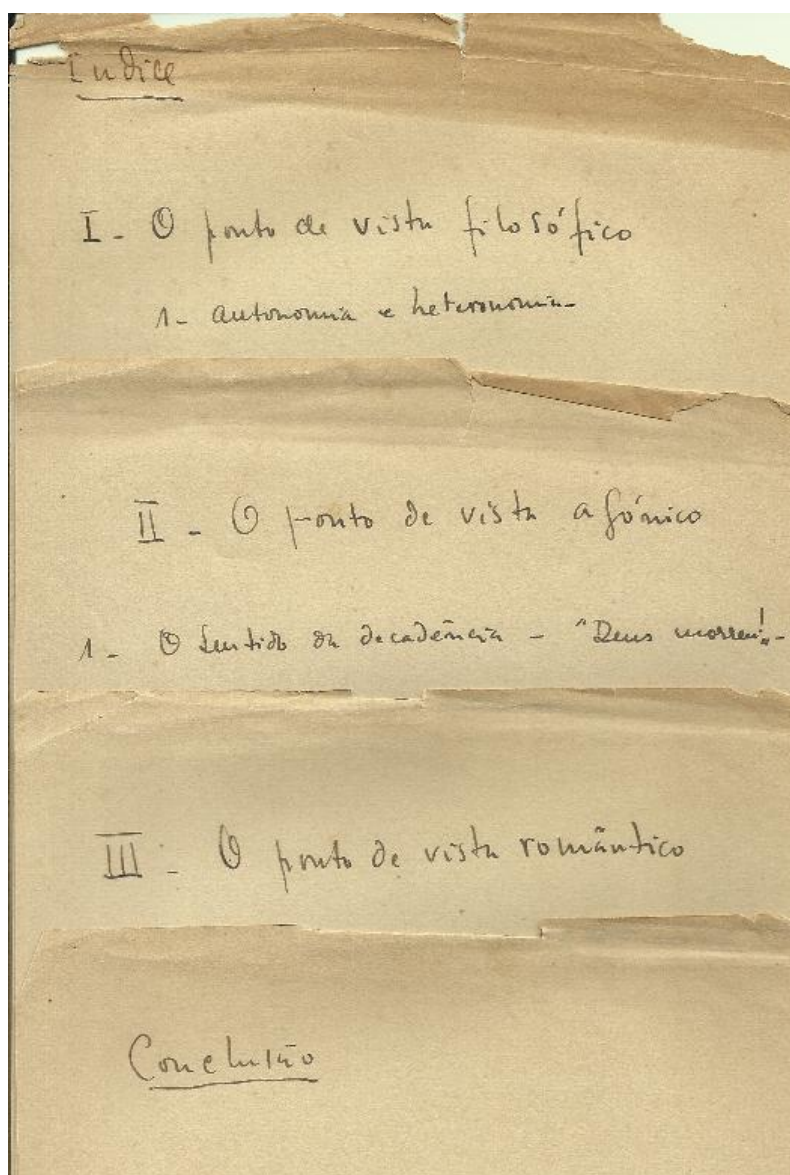 Indice
I - O ponto de vista filosófico
1 - autonomia e heteronomia -
II - O ponto de vista agónico
1 - O sentido da decadência - "Deus morreu!" -
III - O ponto de vista romântico
Conclusão